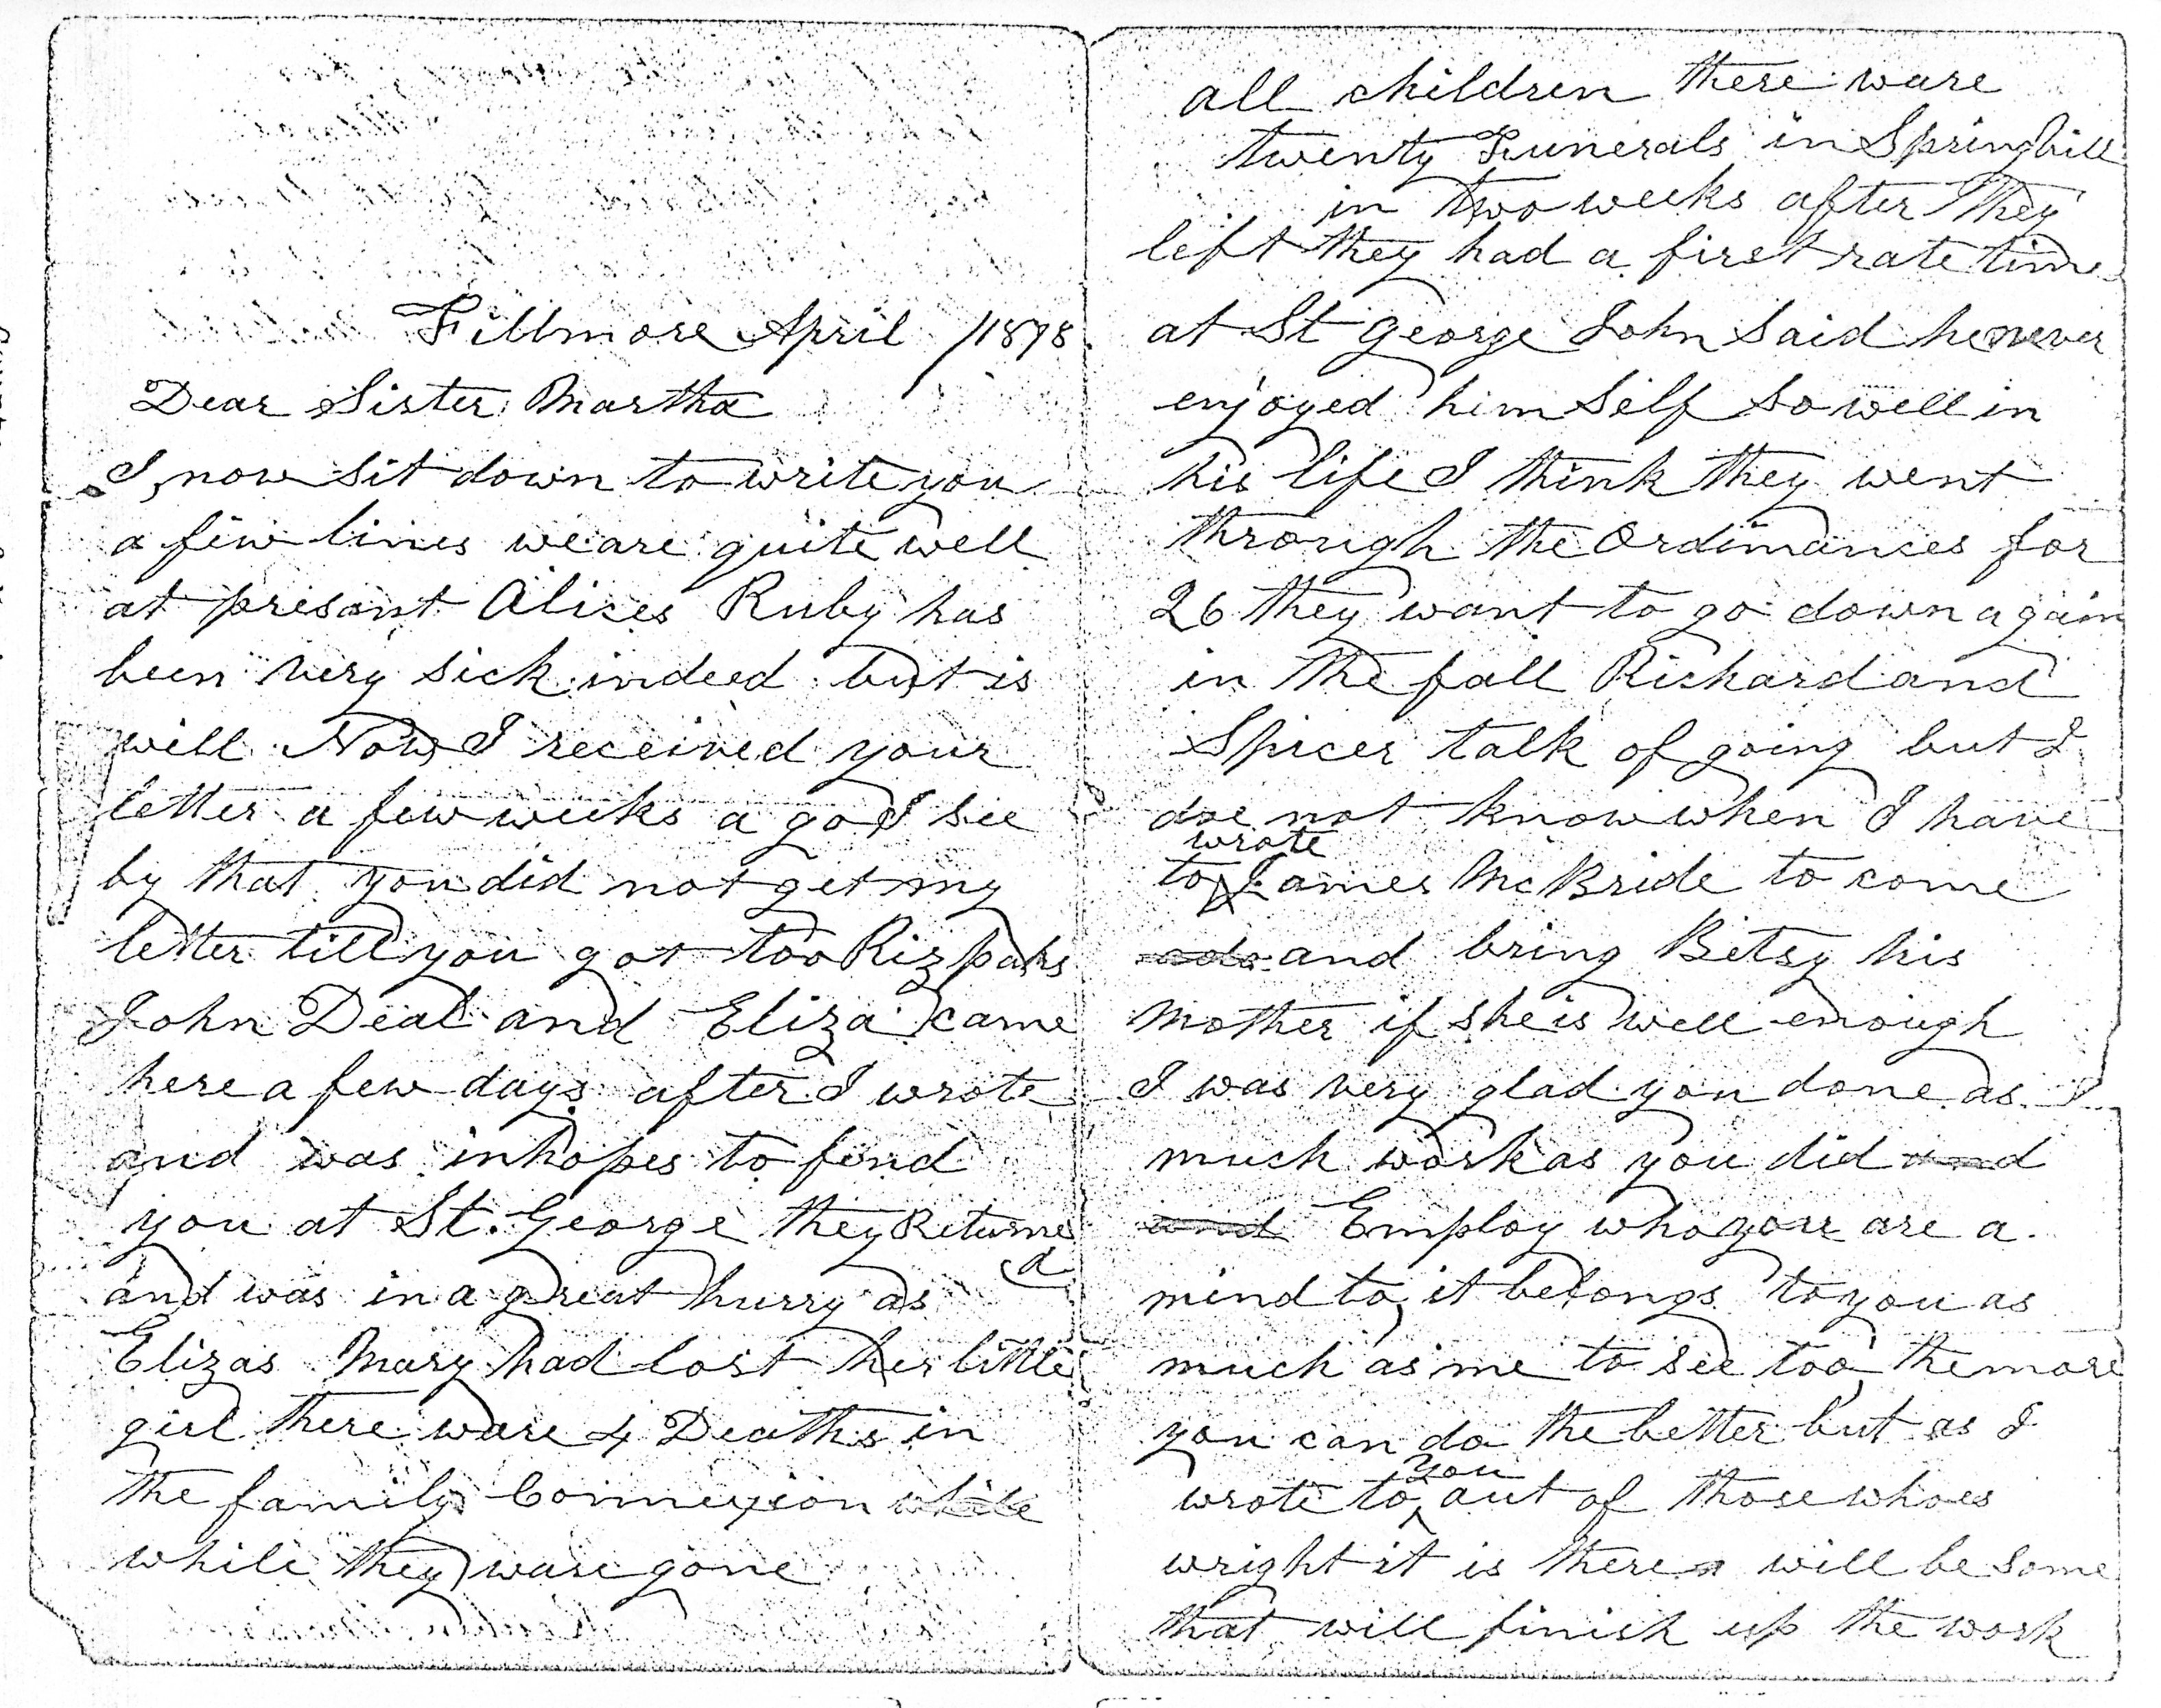 Fillmore April /1878
Dear Sister Martha
I now sit down to write you
a few lines we are quite well
at presant Alices Ruby has
been very sick indeed but is
well Now I received your
letter a few weeks a go I see
by that you did not get my
letter till you got too Rizpahs
John Deal and Eliza came
here a few days after I wrote
and was in hopes to find
you at St. George they Returne
d
and was in a great hurry as
Elizas Mary had lost her little
girl there ware 4 Deaths in
the family Connexion while
while they ware gone
all children there ware
twenty Funerals in Springhill
in two weeks after They
left they had a first rate time
at St George John Said he never
enjoyed him Self So well in
his life I think they went
through the Ordinances for
26 they want to go down again
in the fall Richard and
Spicer talk of going but I
doe not know when I have
wrote
to James McBride to come
and bring Betsy his
Mother if she is well enough
I was very glad you done as
much work as you did and
and Employ who you are a
mind to, it belongs to you as
much as me to see too, the more
you can do the better but as I
you
wrote to out of those whoes
wright it is there will be Some
that will finish up the work